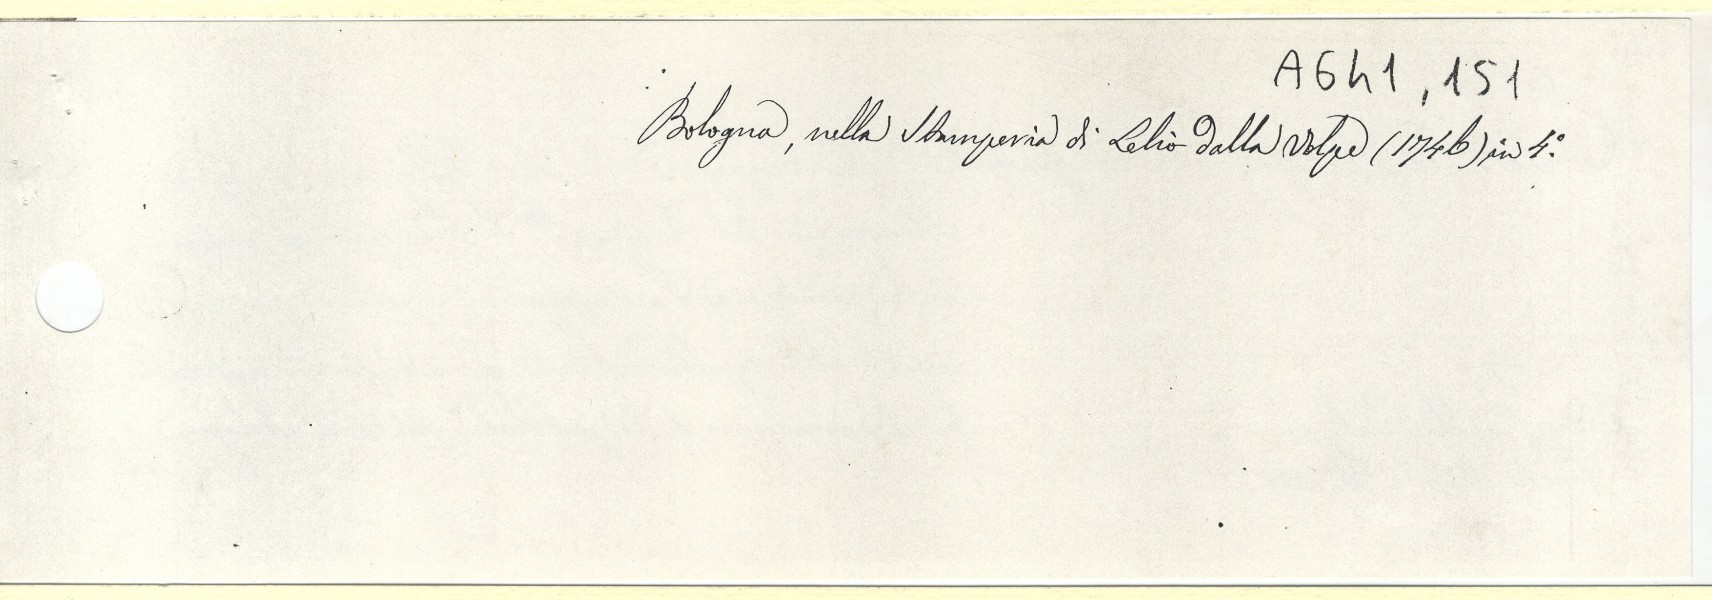 A6h1, 151
Bologna, nella Stamperia di Lelio dalla Volpe (1746) in 4.º